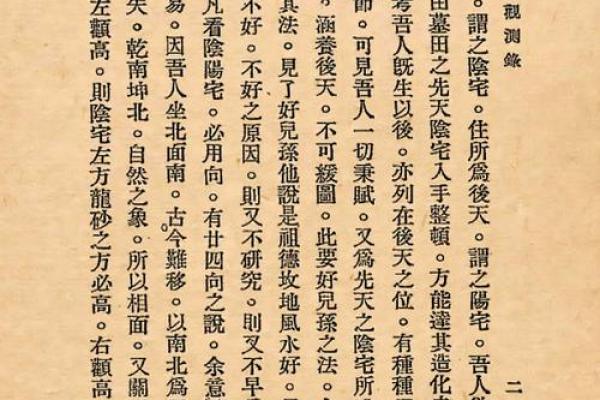 觀測錄 二
。謂之陰宅。住所爲後天。謂之陽宅。吾人
墓田之先天陰宅入手整頓。方能達其造化
考吾人旣生以後。亦列在後天之位。有種種
節。可見吾人一切秉賦。又爲先天之陰宅所
。涵養後天。不可緩圖。此要好兒孫之法。
其法。見了好兒孫他說是祖德坟地風水好。
不好。不好之原因。則又不研究。則又不早
凡看陰陽宅。必用向。有廿四向之說。余意
易。因吾人坐北面南。古今難移。以南北爲
失。乾南坤北。自然之象。所以相面。又關
左顴高。則陰宅左方龍砂之方必高。右顴高